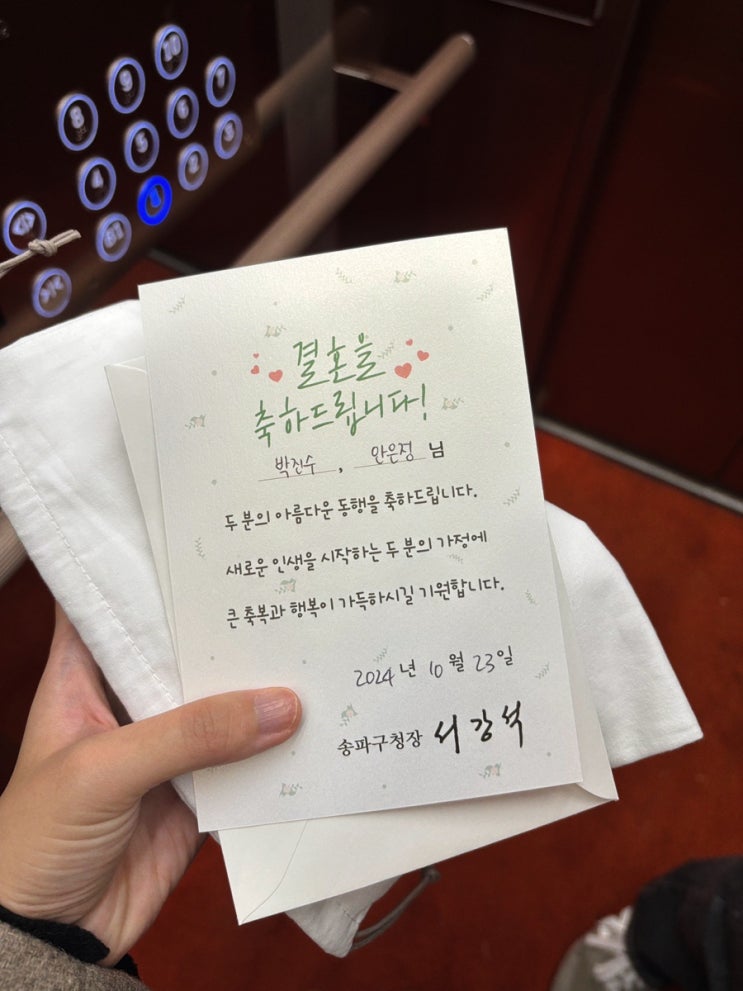 10
9
8
7
6
5
4
3
2
1
B1
결혼을
축하드립니다!
박진수, 안은정 님
두 분의 아름다운 동행을 축하드립니다.
새로운 인생을 시작하는 두 분의 가정에
큰 축복과 행복이 가득하시길 기원합니다.
2024 년 10 월 23 일
송파구청장 서강석